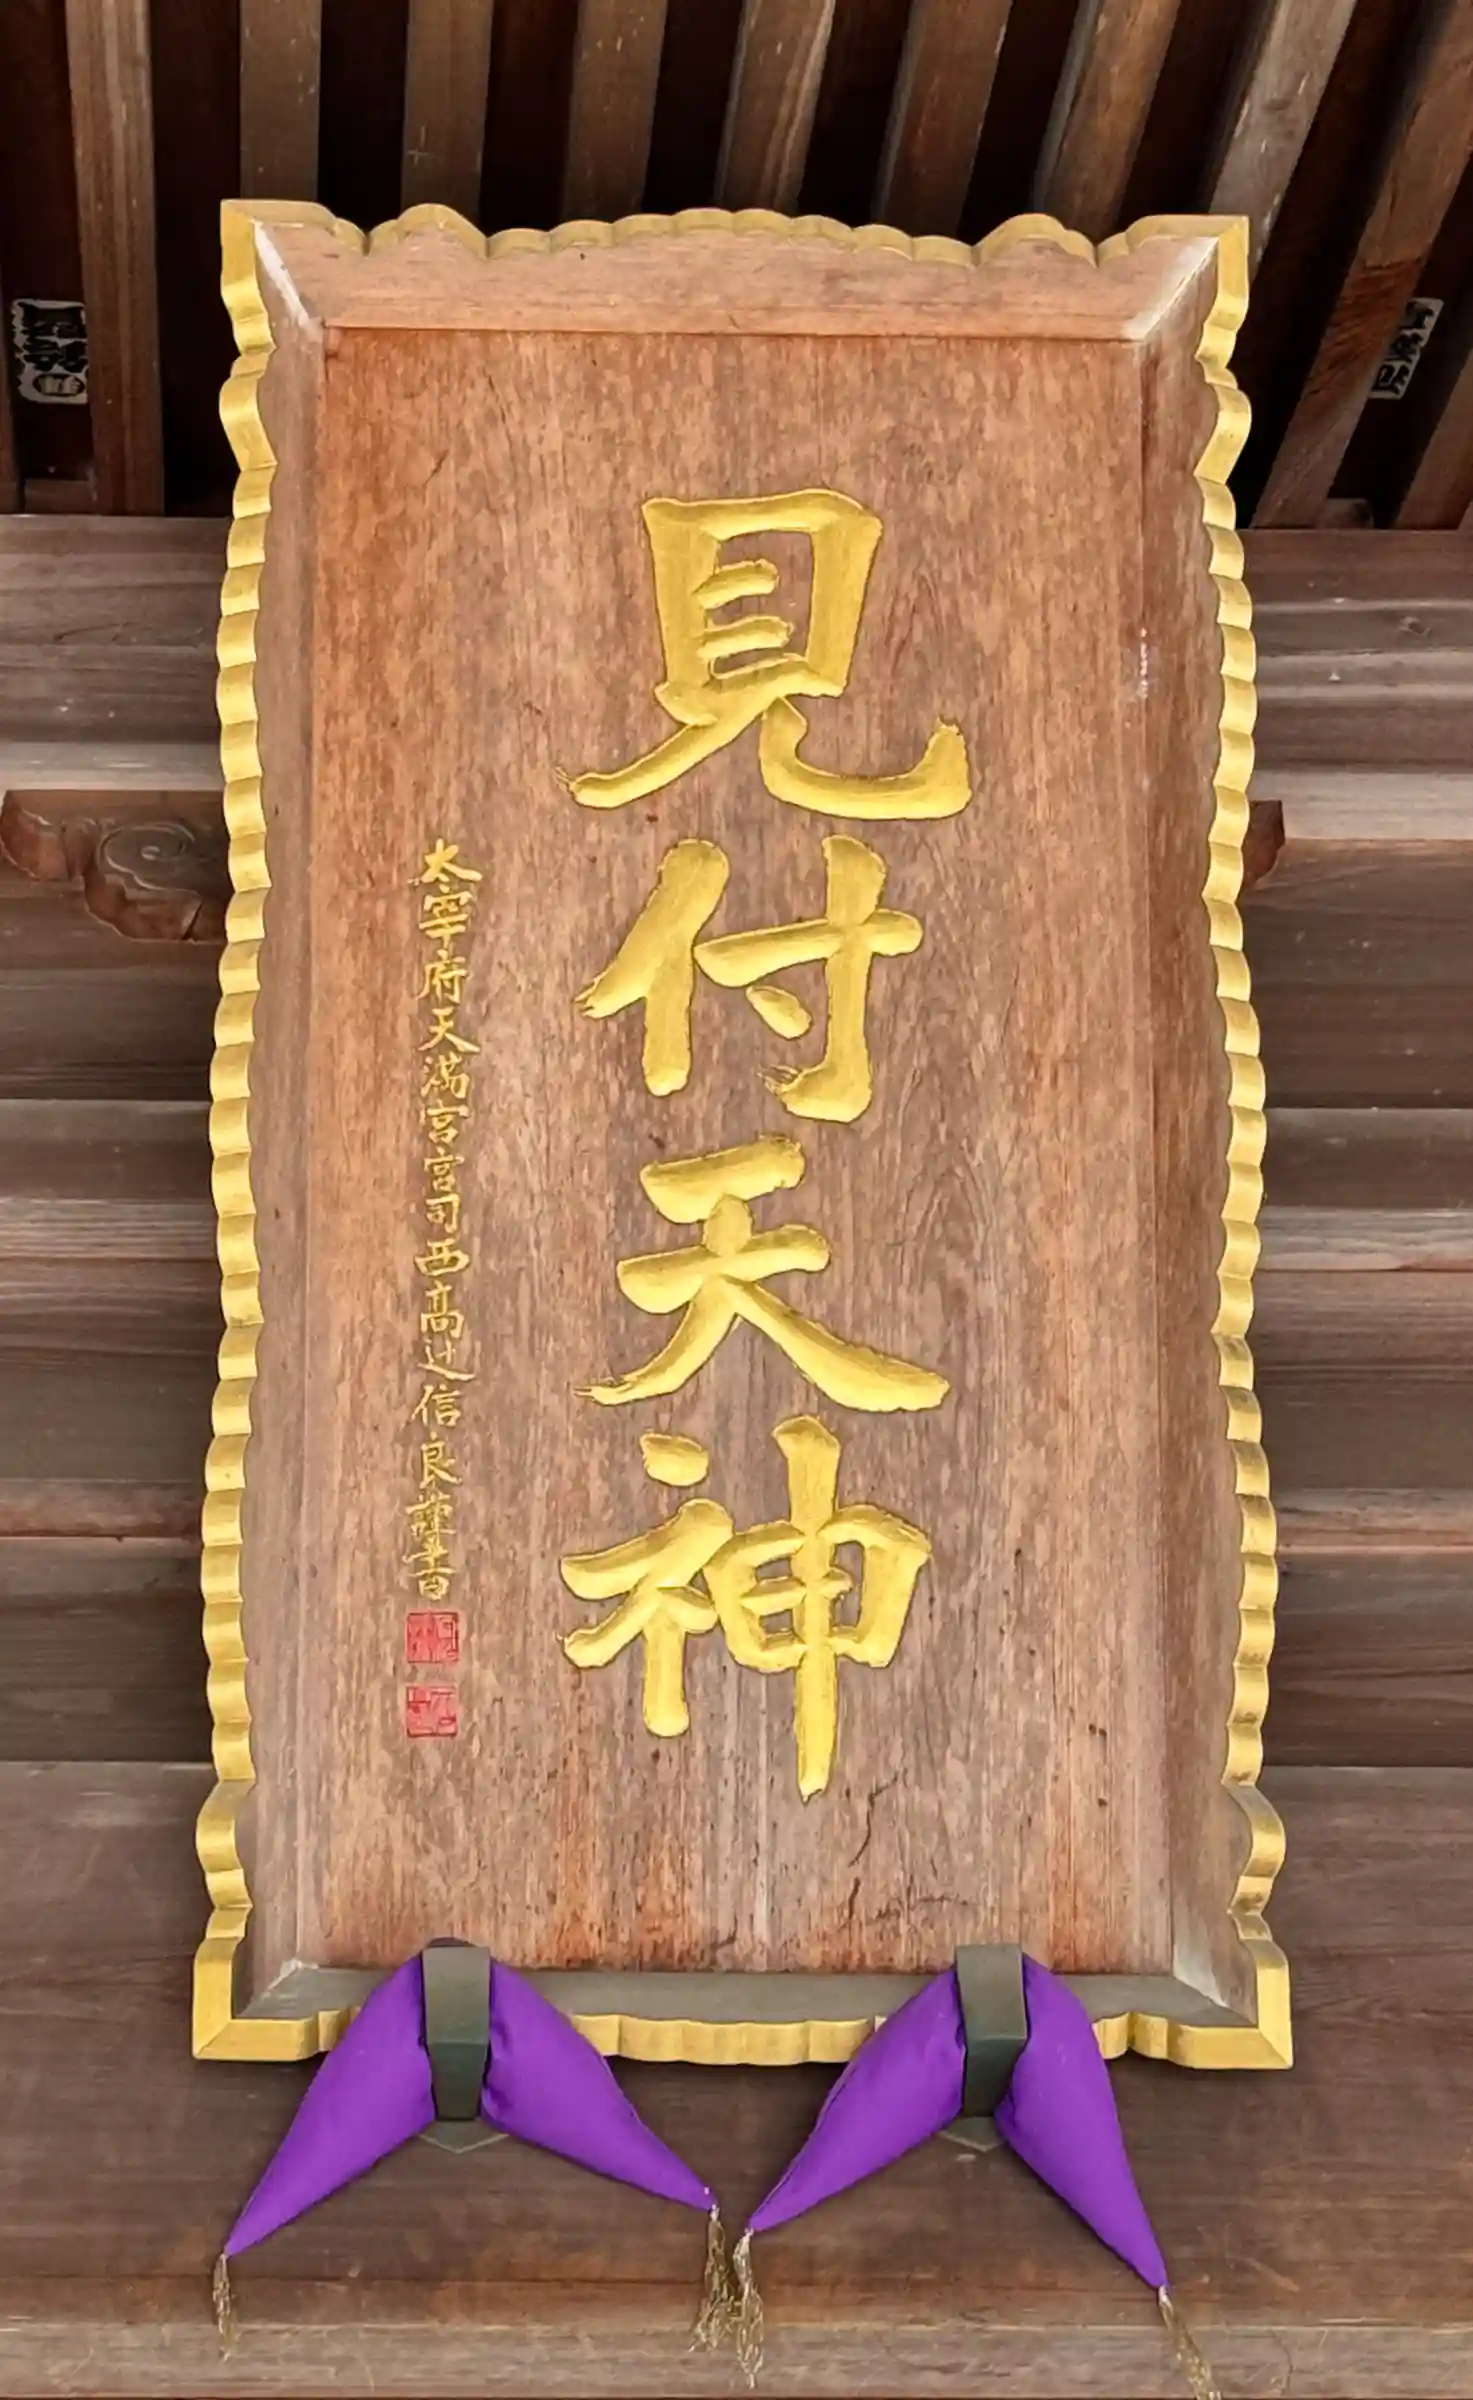 見付天神
太宰府天満宮宮司西高辻信良謹書